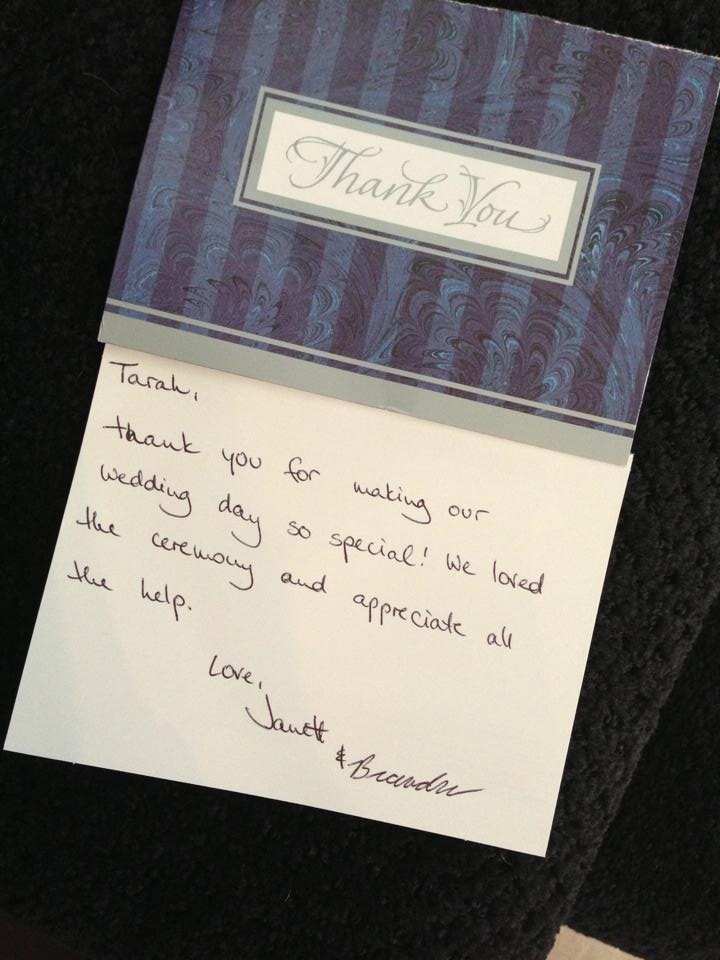 Thank You
Tarah,
thank you for making our
wedding day so special! We loved
the ceremony and appreciate all
the help.
Love,
Janett
&